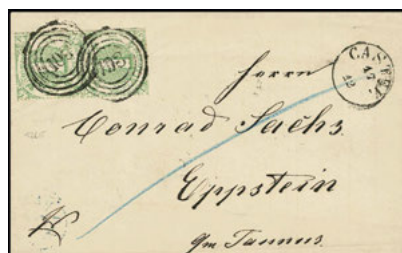 105 105
CASTEL
Herrn
Conrad Sachs.
Eppstein
im Taunus.